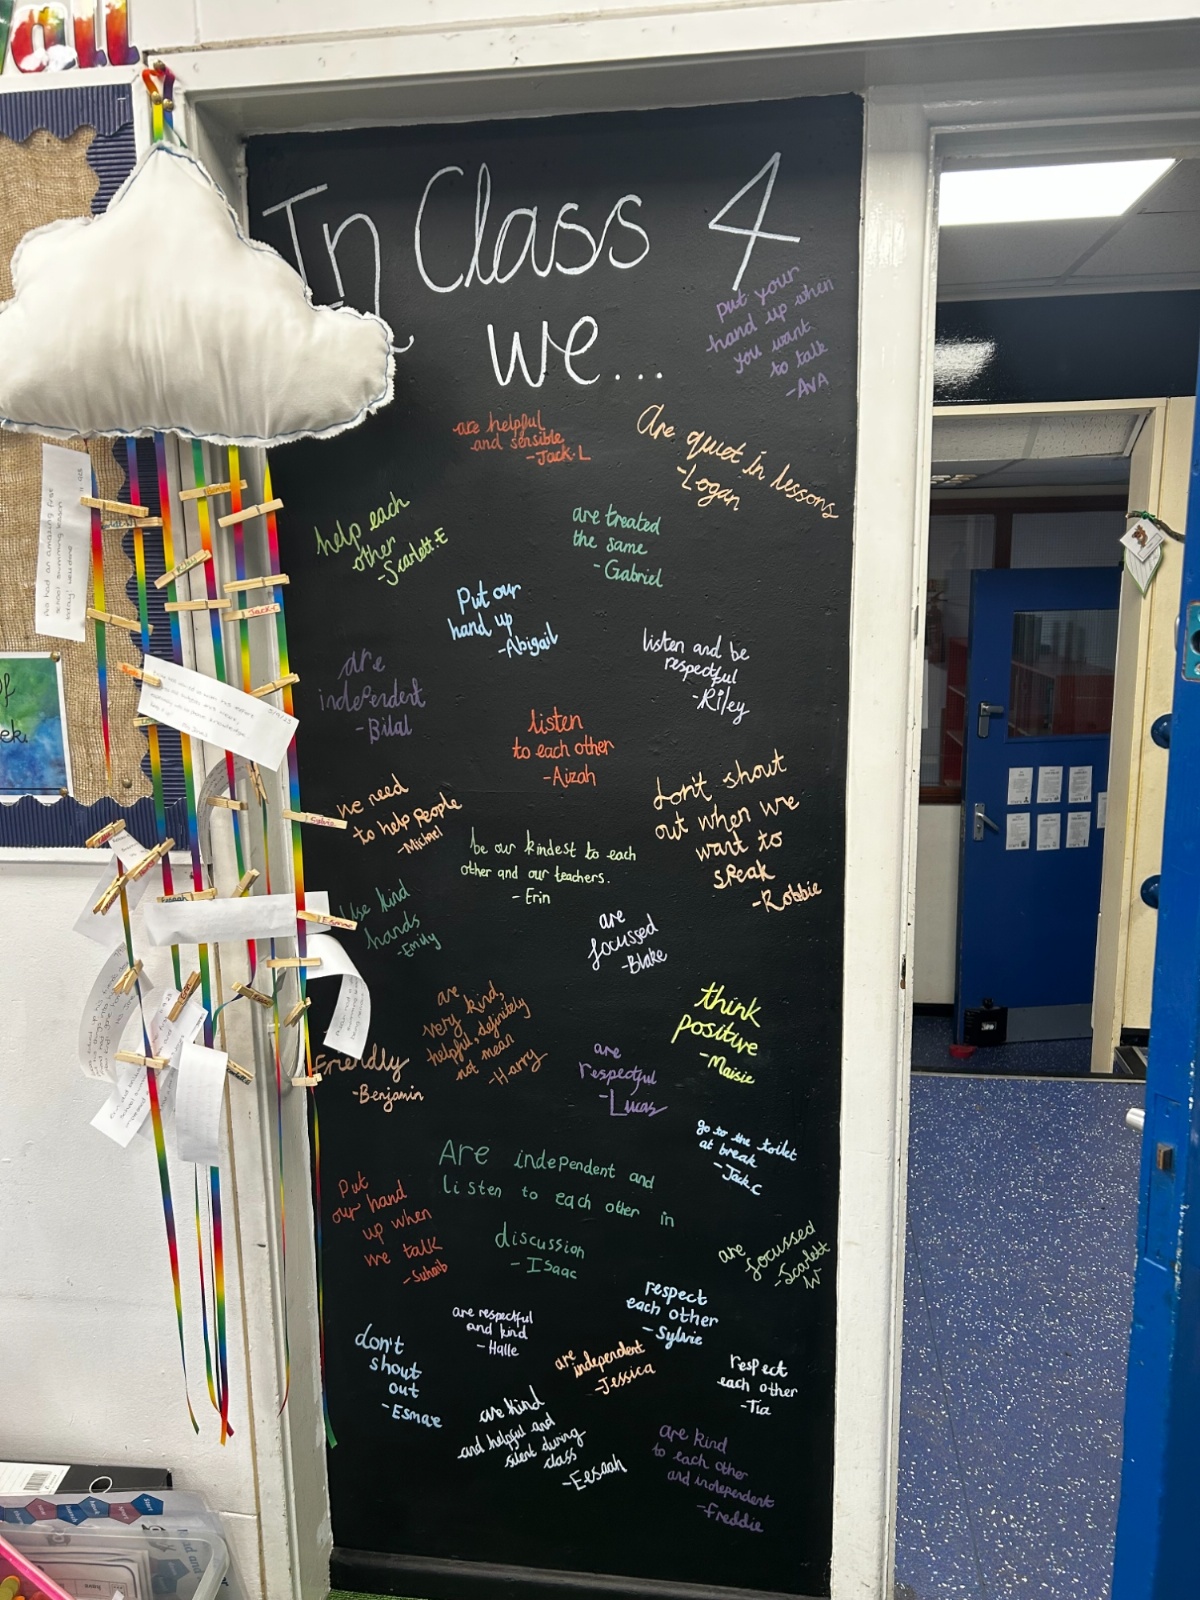 all
In Class 4
we...
put your
hand up when
you want
to talk
-AVA
are helpful
and sensible
-Jack.L
Are quiet in lessons
-Logan
help each
other
-Scarlett.E
are treated
the same
-Gabriel
Put our
hand up
-Abigail
listen and be
respectful
-Riley
are
independent
-Bilal
listen
to each other
-Aizah
don't shout
out when we
want to
speak
-Robbie
we need
to help People
-Michael
be our kindest to each
other and our teachers.
-Erin
Use kind
hands
-Emily
are
focussed
-Blake
are
very kind,
helpful, definitely
not mean
-Harry
think
positive
-Maisie
friendly
-Benjamin
are
respectful
-Lucas
go to the toilet
at break
-Jack.C
Are independent and
listen to each other in
discussion
-Isaac
Put
our hand
up when
we talk
-Suhaib
are focussed
-Scarlett
W
respect
each other
-Sylvie
are respectful
and kind
-Halle
don't
shout
out
-Esmae
are
independent
-Jessica
respect
each other
-Tia
are kind
and helpful and
silent during
class
-Eesaah
are kind
to each other
and independent
-Freddie
We had an amazing first
school swimming lesson
today!
Jack.C
Sylvie